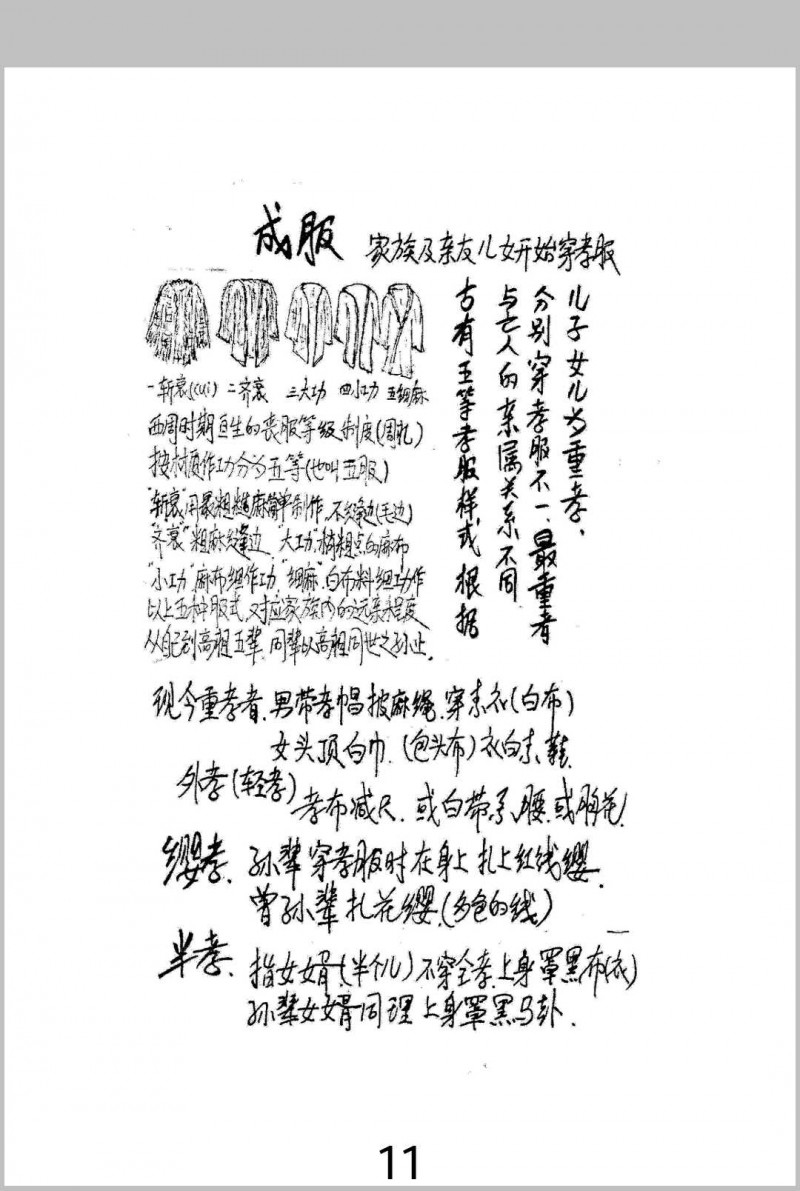 成服 家族及亲友儿女开始穿孝服
儿子女儿为重孝、
分别穿孝服不一、最重者
与亡人的亲属关系不同
古有五等孝服样式、根据
一斩衰(cui) 二齐衰 三大功 四小功 五缌麻
西周时期亘生的丧服等级制度(周礼)
按材质作功分为五等(也叫五服)
"斩衰"用最粗糙麻简单制作、不缝边(毛边)
"齐衰"粗麻缝边、"大功"稍粗点的麻布
"小功"麻布细作功"缌麻"、白布料细功作
以上五种服式、对应家族内的远亲程度
从自己到高祖五辈、同辈以高祖同世之孙止、
现今重孝者、男带孝帽披麻绳、穿素衣(白布)
女头顶白巾、(包头布)衣白素鞋、
外孝(轻孝) 孝布减尺、或白带系腰、或胸花、
缨孝、孙辈穿孝服时在身上扎上红线缨、
曾孙辈扎花缨、(多色的线)
半孝、指女婿(半个儿)不穿全孝、上身罩黑布(衣)
孙辈女婿同理上身罩黑马卦、
11